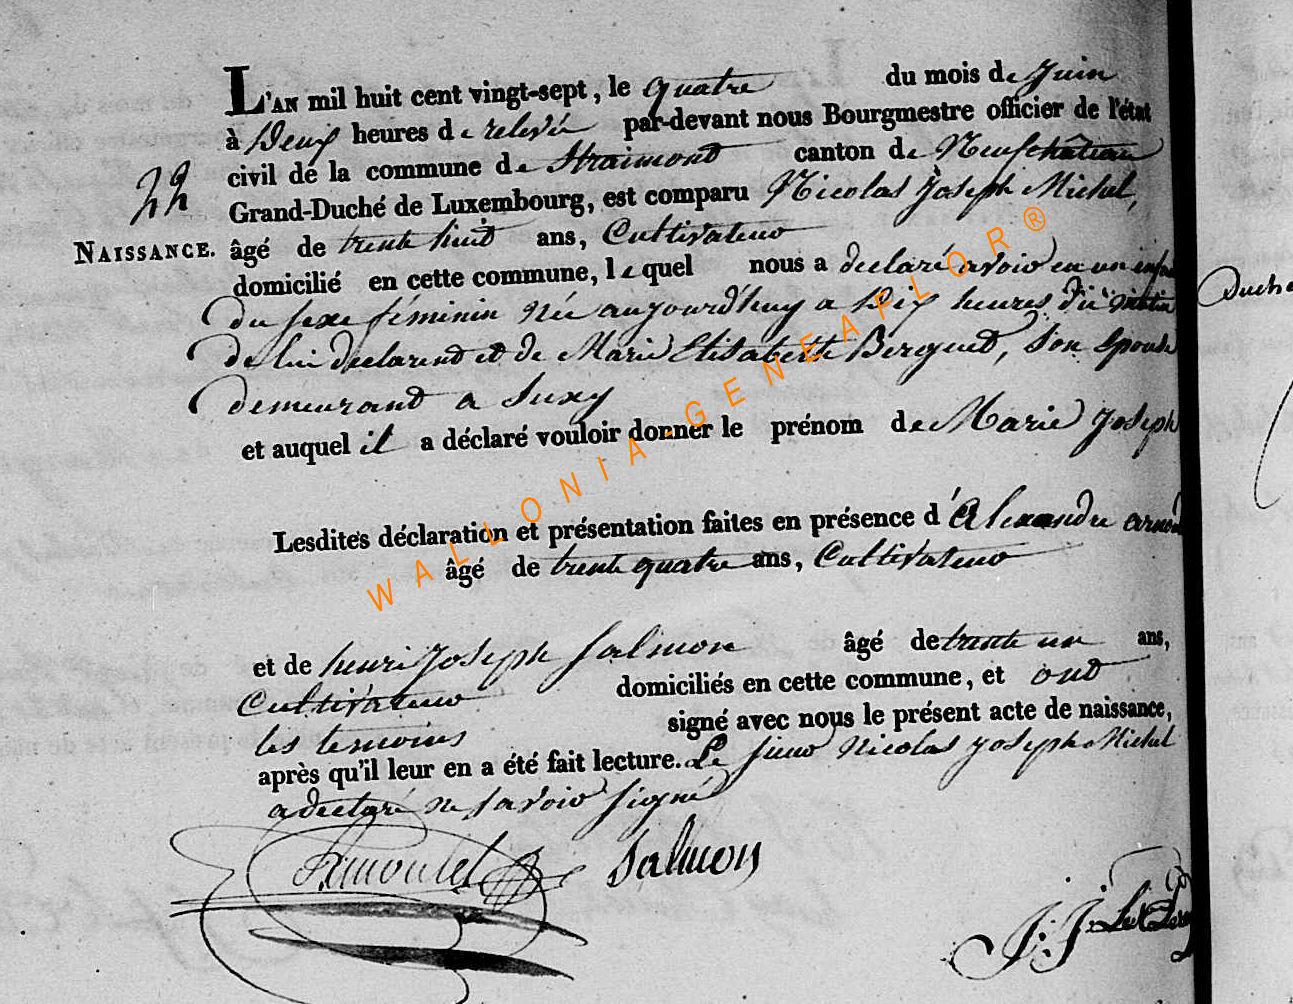 L'AN mil huit cent vingt-sept, le quatre du mois de Juin
à Deux heures de relevée par-devant nous Bourgmestre officier de l'état
civil de la commune de Straimont canton de Neufchâteau
22
Grand-Duché de Luxembourg, est comparu Nicolas Joseph Michel,
NAISSANCE. âgé de trente huit ans, Cultivateur
domicilié en cette commune, lequel nous a declaré avoir eu un
du sexe féminin née aujourd'huy a Dix heures du matin
de lui declarent et de Marie Elisabeth Berguet, Son Epouse
demeurant a Suxy
et auquel il a déclaré vouloir donner le prénom de Marie Joseph
Lesdites déclaration et présentation faites en présence d'Alexandre
âgé de trente quatre ans, Cultivateur
et de henri Joseph Salmon âgé de trente un ans,
Cultivateur domiciliés en cette commune, et ont
les temoins signé avec nous le présent acte de naissance,
après qu'il leur en a été fait lecture. Le sieur Nicolas Joseph Michel
a declaré ne savoir signé
Salmon
J: J:
WALLONIA-GENEAFLOR®